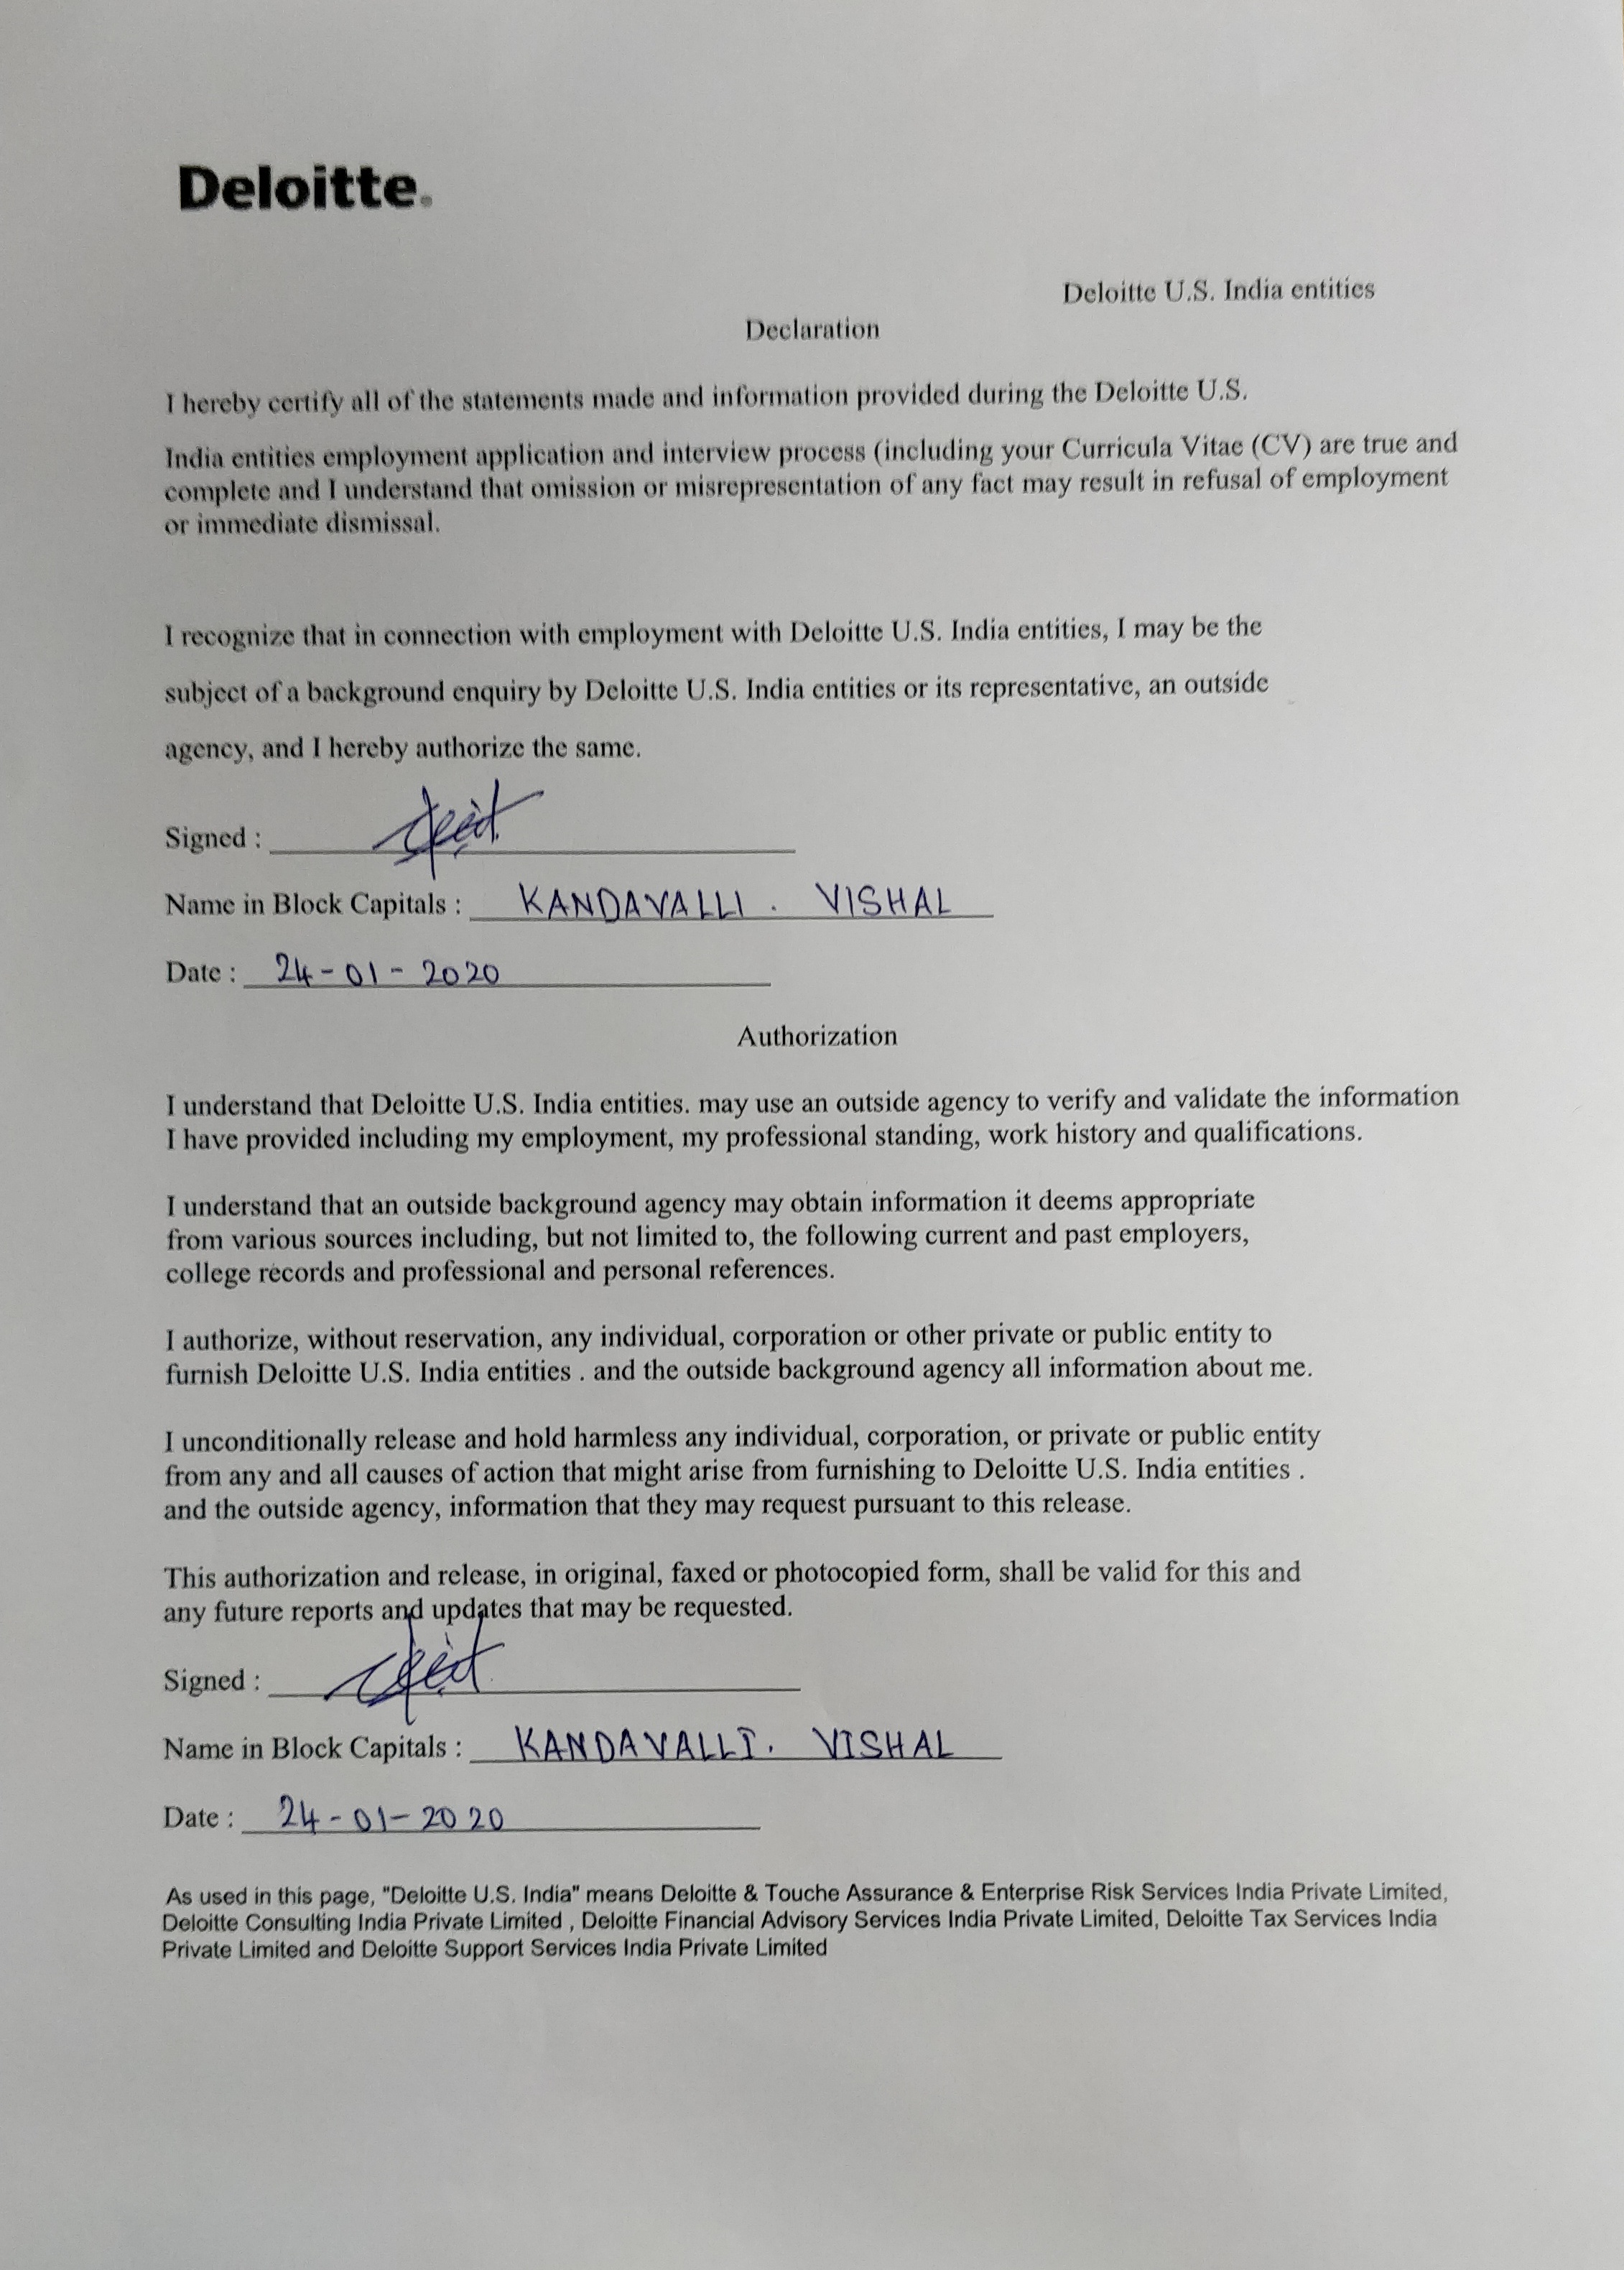 Deloitte.
Deloitte U.S. India entities
Declaration
I hereby certify all of the statements made and information provided during the Deloitte U.S.
India entities employment application and interview process (including your Curricula Vitae (CV) are true and
complete and I understand that omission or misrepresentation of any fact may result in refusal of employment
or immediate dismissal.
I recognize that in connection with employment with Deloitte U.S. India entities, I may be the
subject of a background enquiry by Deloitte U.S. India entities or its representative, an outside
agency, and I hereby authorize the same.
Signed :
Name in Block Capitals : KANDAVALLI . VISHAL
Date : 24-01-2020
Authorization
I understand that Deloitte U.S. India entities. may use an outside agency to verify and validate the information
I have provided including my employment, my professional standing, work history and qualifications.
I understand that an outside background agency may obtain information it deems appropriate
from various sources including, but not limited to, the following current and past employers,
college records and professional and personal references.
I authorize, without reservation, any individual, corporation or other private or public entity to
furnish Deloitte U.S. India entities . and the outside background agency all information about me.
I unconditionally release and hold harmless any individual, corporation, or private or public entity
from any and all causes of action that might arise from furnishing to Deloitte U.S. India entities .
and the outside agency, information that they may request pursuant to this release.
This authorization and release, in original, faxed or photocopied form, shall be valid for this and
any future reports and updates that may be requested.
Signed :
Name in Block Capitals : KANDAVALLI. VISHAL
Date : 24-01-2020
As used in this page, "Deloitte U.S. India" means Deloitte & Touche Assurance & Enterprise Risk Services India Private Limited,
Deloitte Consulting India Private Limited , Deloitte Financial Advisory Services India Private Limited, Deloitte Tax Services India
Private Limited and Deloitte Support Services India Private Limited